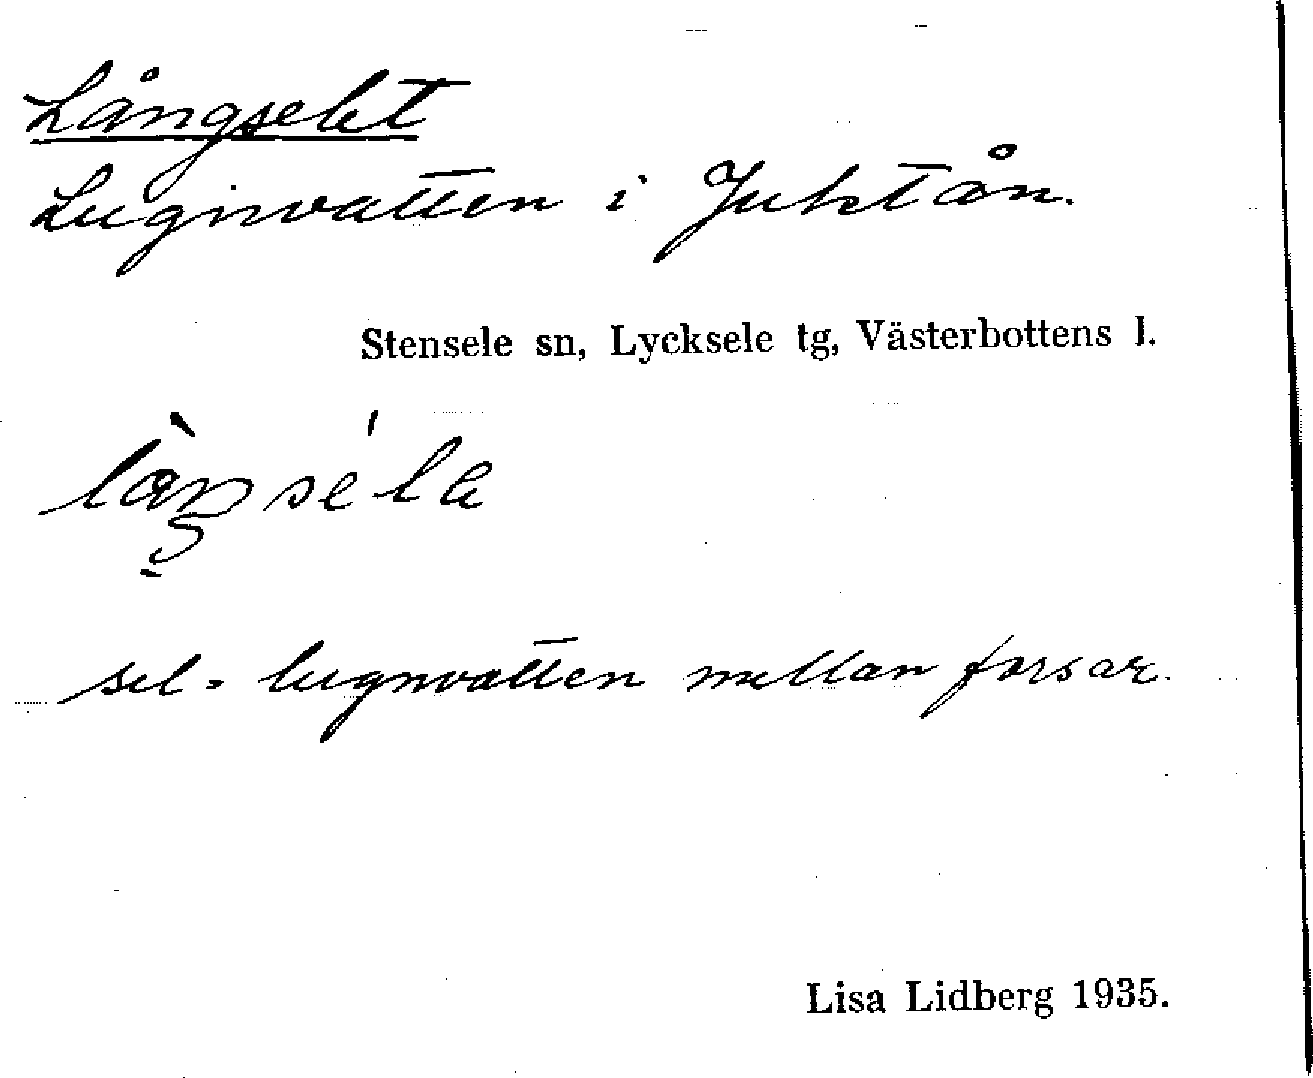 Långselet
Lugnvatten i Juktån.
Stensele sn, Lycksele tg, Västerbottens l.
sel = lugnvatten mellan forsar.
Lisa Lidberg 1935.